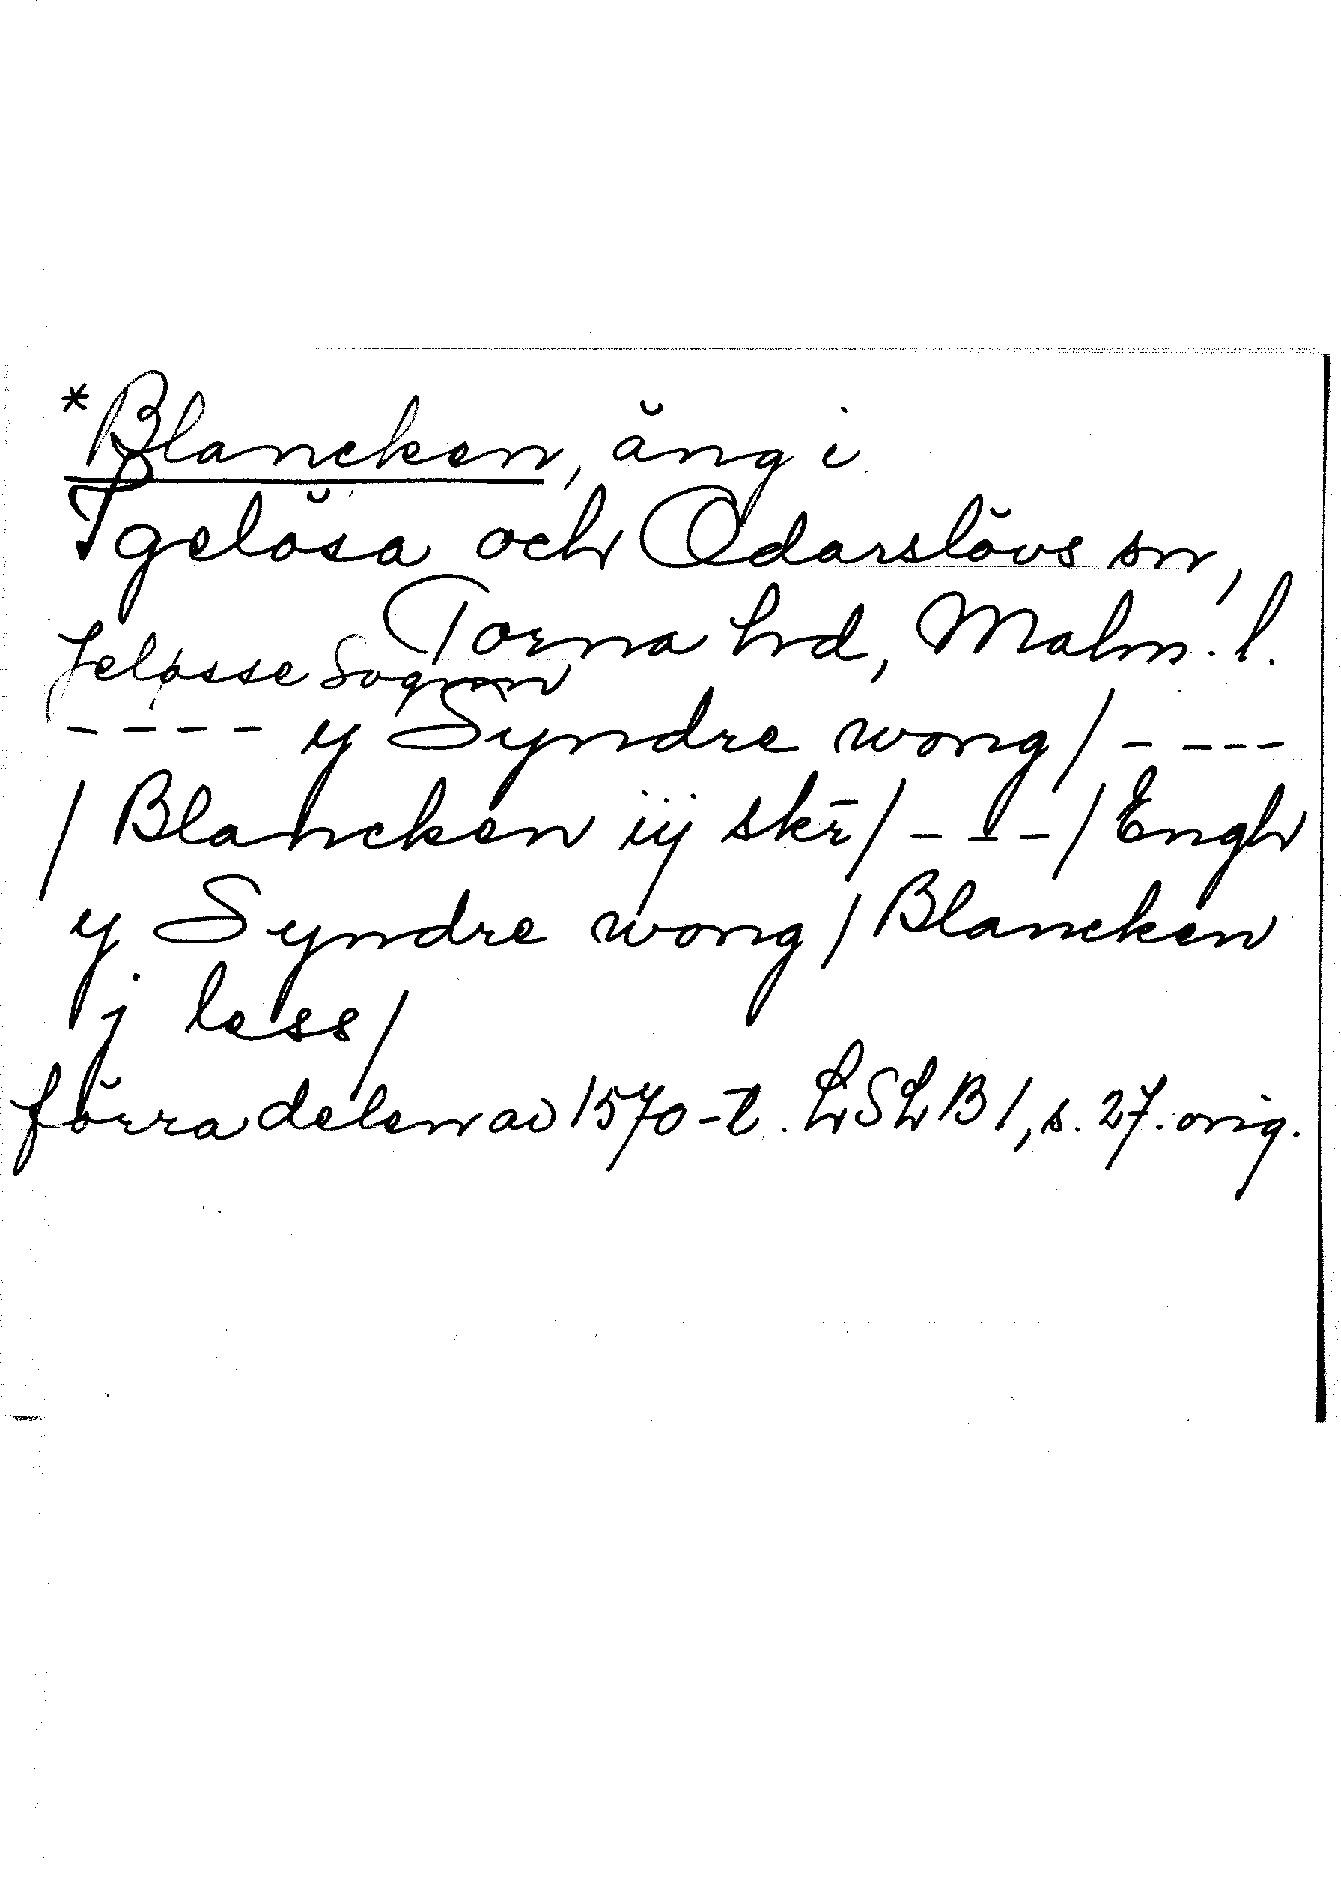 *Blancken, äng i
Igelösa och Odarslövs sn,
Torna hrd, Malm. l.
Jeløsse Sogenn
---- y Syndre wong/ ----
/ Blancken iij skr̄/ ---/ Engh
y Syndre wong/ Blancken
j less/
förra delen av 1570-t. LSLB 1, s. 27. orig.